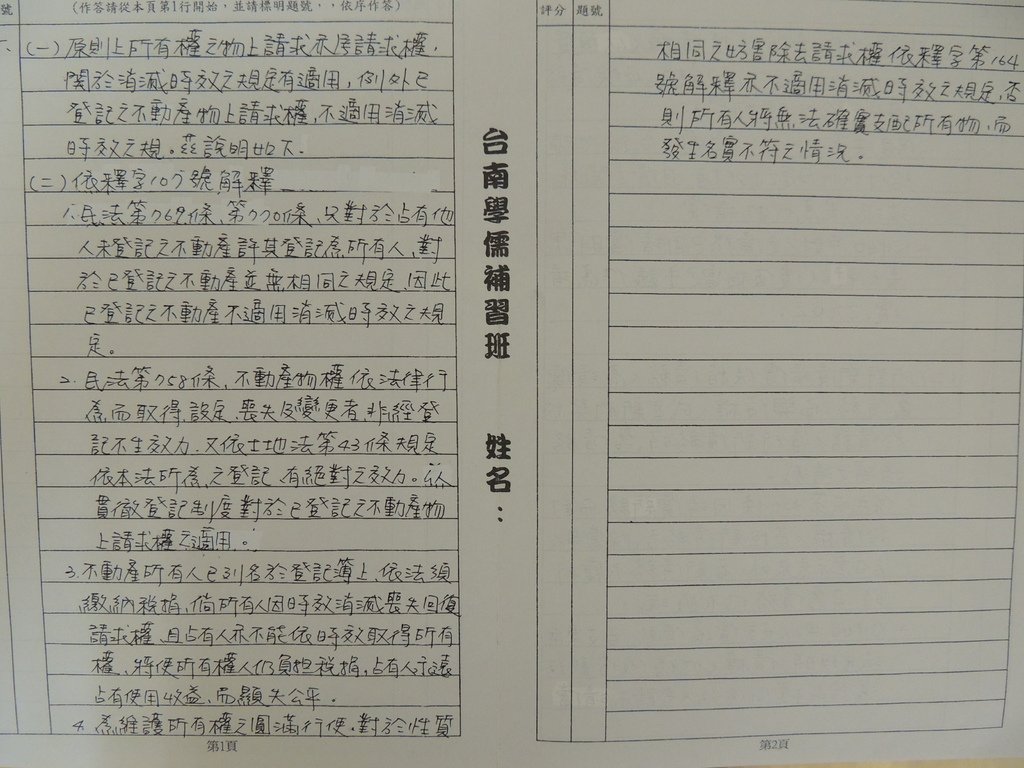 號
(作答請從本頁第1行開始，並請標明題號，，依序作答)
一、(一)原則上所有權之物上請求亦屬請求權，
關於消滅時效之規定有適用，例外已
登記之不動產物上請求權，不適用消滅
時效之規。茲說明如下.
(二)依釋字107號解釋
1.民法第769條、第770條、只對於占有他
人未登記之不動產許其登記為所有人、對
於已登記之不動產並無相同之規定、因此
已登記之不動產不適用消滅時效之規
定。
2.民法第758條、不動產物權依法律行
為而取得、設定、喪失及變更者、非經登
記不生效力、又依土地法第43條規定
依本法所為之登記、有絕對之效力。以
貫徹登記制度對於已登記之不動產物
上請求權之適用。
3.不動產所有人已列名於登記簿上、依法須
繳納稅捐、倘所有人因時效消滅喪失回復
請求權、且占有人亦不能依時效取得所有
權、將使所有權人仍負担稅捐，占有人永遠
占有使用收益、而顯失公平。
4.為維護所有權之圓滿行使、對於性質
第1頁
台南學儒補習班 姓名：
評分 題號
相同之妨害除去請求權、依釋字第164
號解釋亦不適用消滅時效之規定、否
則所有人將無法確實支配所有物、而
發生名實不符之情況。
第2頁